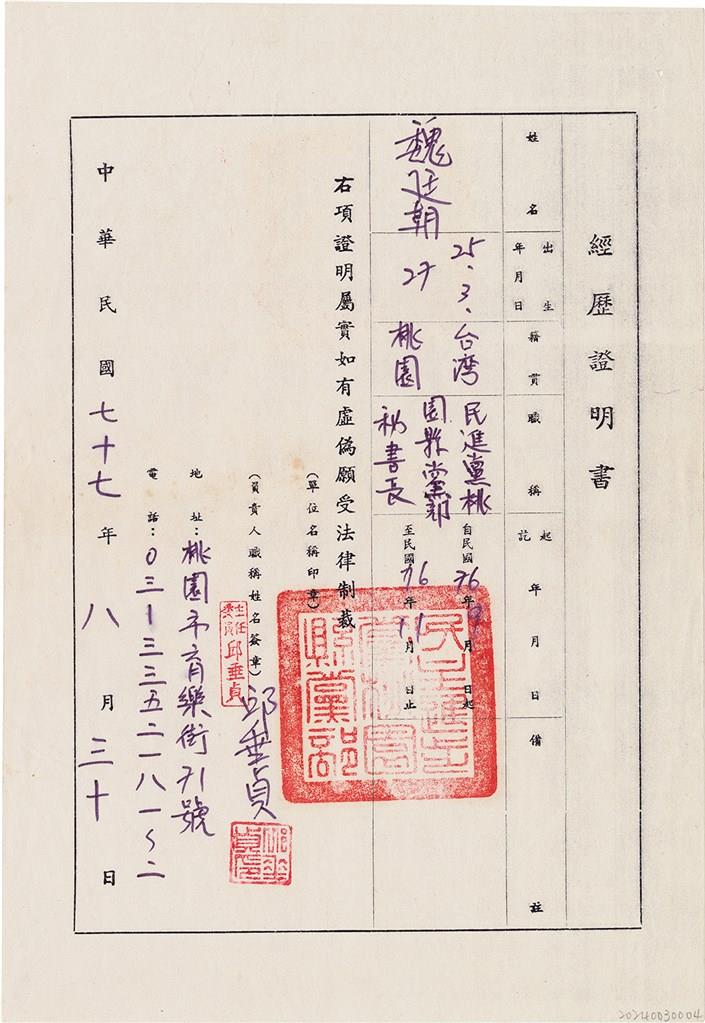 經歷證明書
姓名
出生年月日
籍貫
職稱
起訖年月日
備註
魏廷朝
25.3.
27
台湾
桃園
民進黨桃
園縣黨部
秘書長
自民國76年9月 日起
至民國76年11月 日止
右項證明屬實如有虛偽願受法律制裁
(單位名稱印章)
民主進步
黨桃園
縣黨部
(負責人職稱姓名簽章)
主任委員 邱垂貞
邱垂貞
地址:桃園市育樂街71號
電話:03-3352181~2
中華民國七十七年八月三十日
20240030004